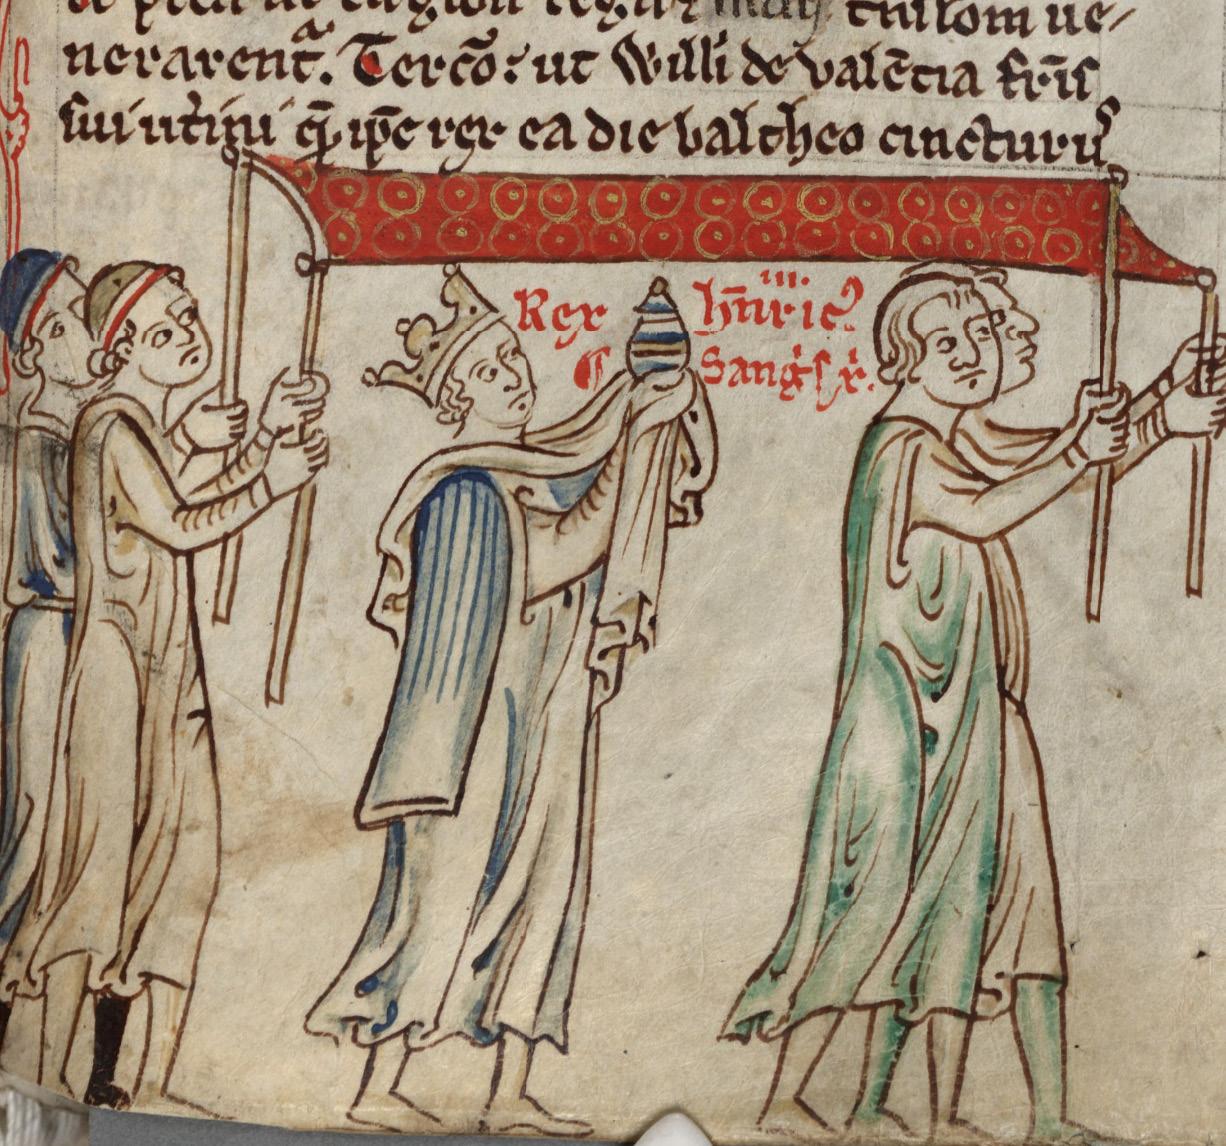 ue
nerarent͛. Terc̄o: ut Willi de valēcia fr̄is
sui ut͛ini q̄m ip̄e rex ea die baltheo cincturꝰ
Rex hn̄ricꝰ iii.
Sangˢ xͥ.